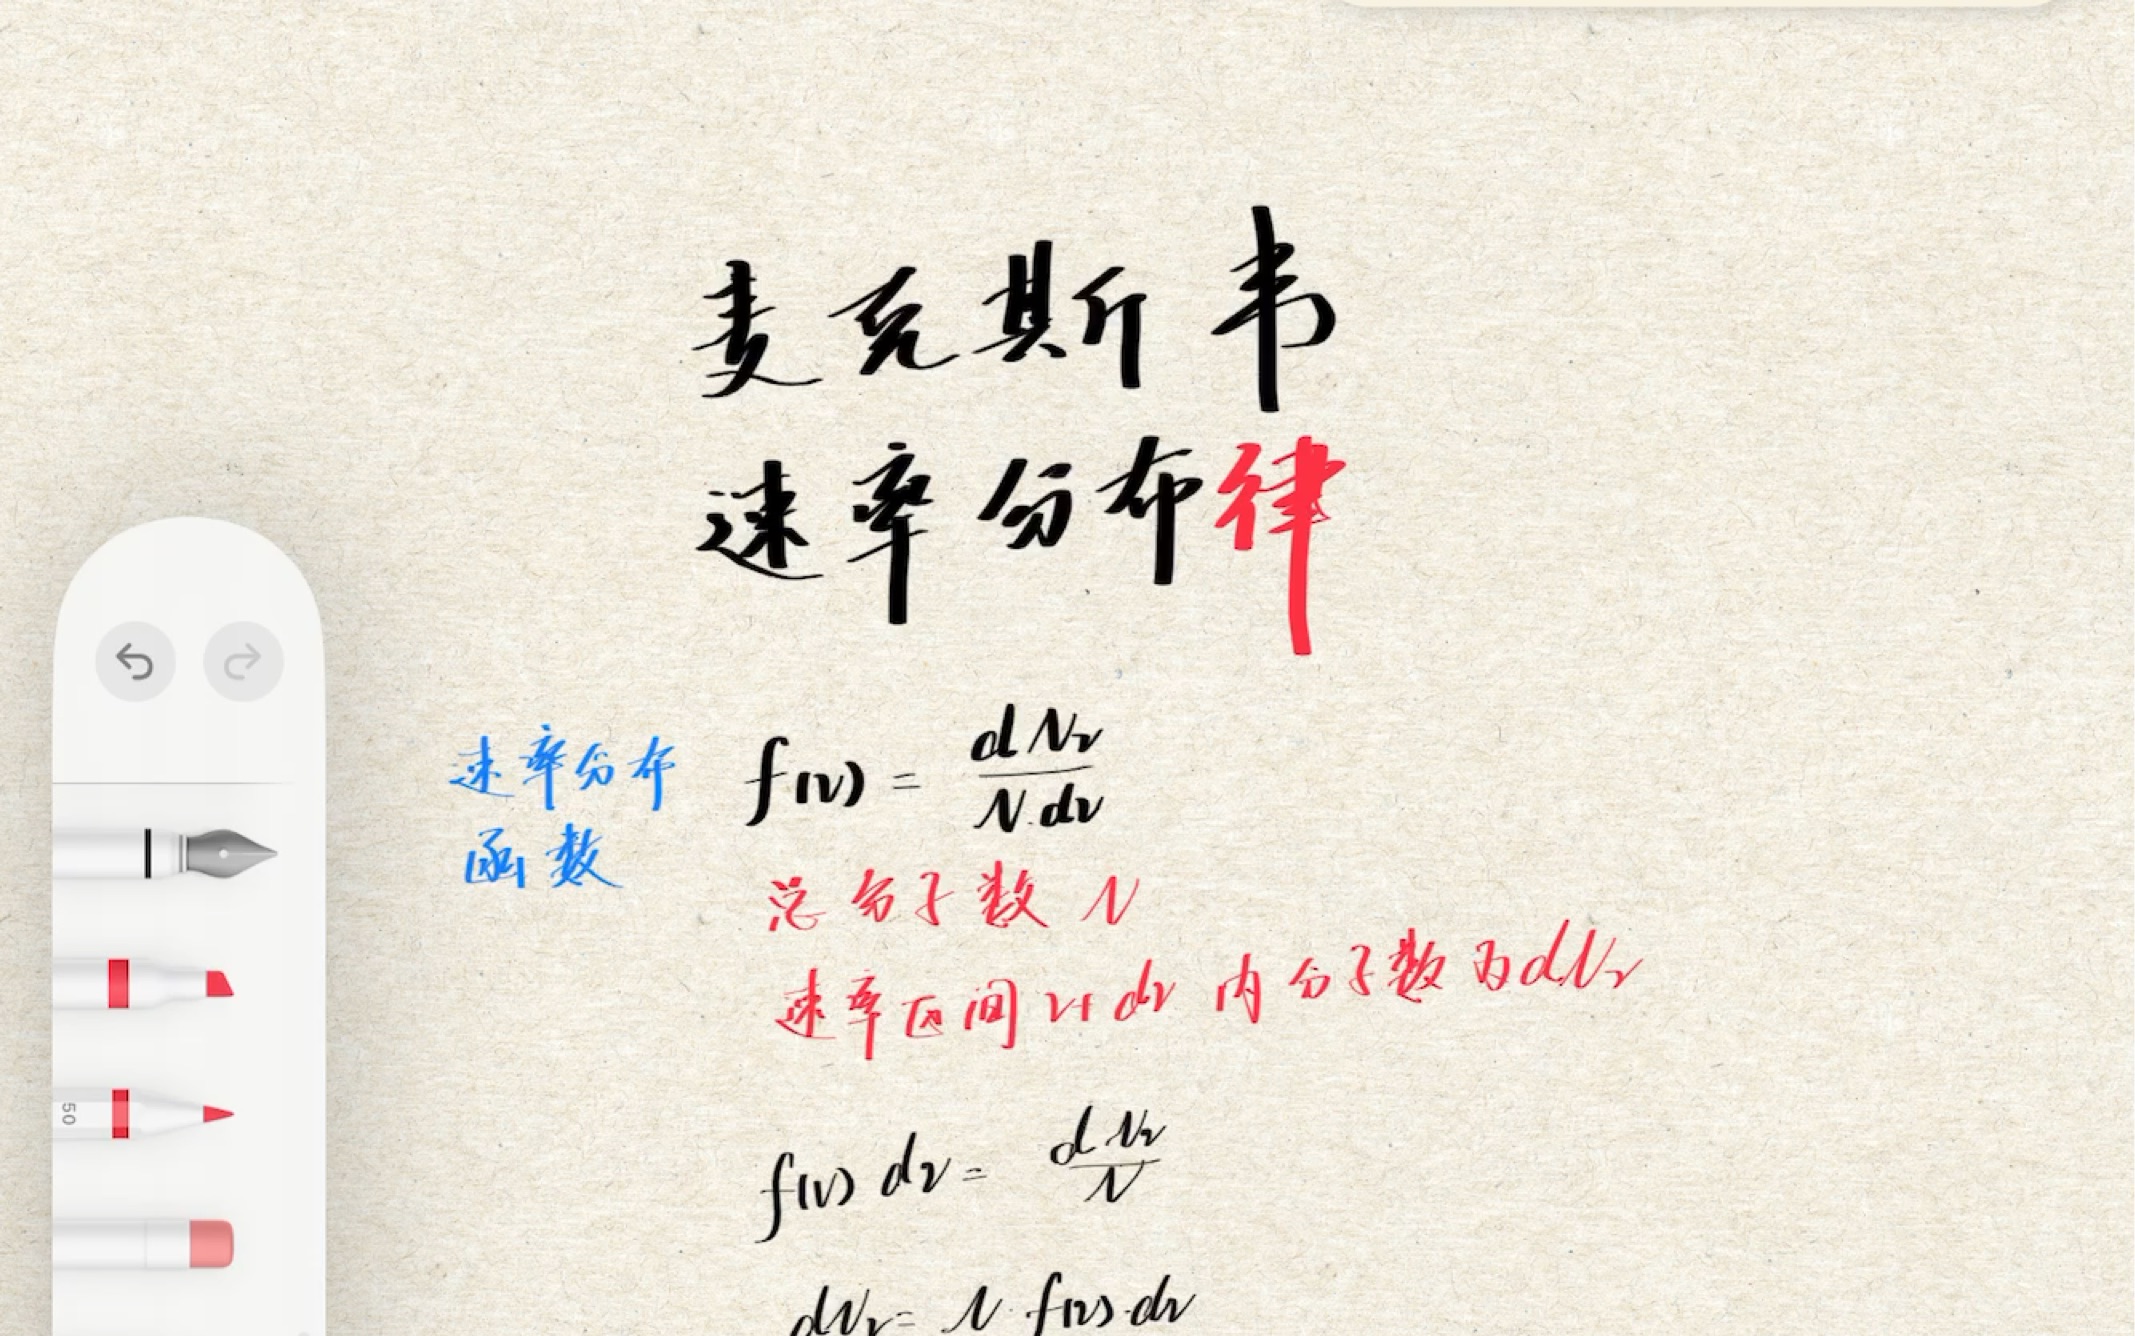 麦克斯韦
速率分布律
速率分布
函数
f(v) = dNv / N·dv
总分子数 N
速率区间 v+dv 内分子数为 dNv
f(v) dv = dNv / N
dNv = N·f(v)·dv
50